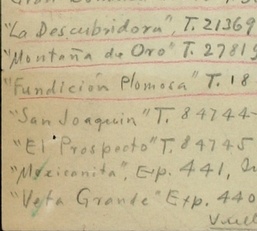 "La Descubridora", T. 21369
"Montaña de Oro" T. 27819
"Fundición Plomosa" T. 18
"San Joaquin" T. 84744-
"El Prospecto" T. 84745
"Mexicanita", Exp. 441,
"Veta Grande" Exp. 440